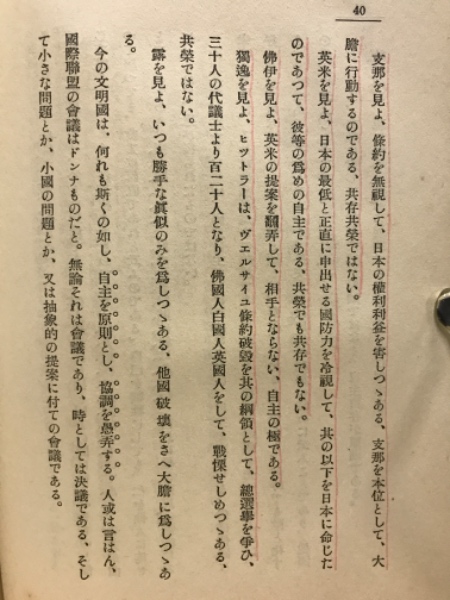 40
支那を見よ、條約を無視して、日本の權利利益を害しつゝある、支那を本位として、大
膽に行動するのである、共存共榮ではない。
英米を見よ、日本の最低と正直に申出せる國防力を冷視して、其の以下を日本に命じた
のであつて、彼等の爲めの自主である、共榮でも共存でもない。
佛伊を見よ、英米の提案を飜弄して、相手とならない、自主の極である。
獨逸を見よ、ヒツトラーは、ヴエルサイユ條約破毀を其の綱領として、總選擧を爭ひ、
三十人の代議士より百二十人となり、佛國人白國人英國人をして、戰慄せしめつゝある、
共榮ではない。
露を見よ、いつも勝手な眞似のみを爲しつゝある、他國破壞をさへ大膽に爲しつゝあ
る。
今の文明國は、何れも斯くの如し、自主を原則とし、協調を愚弄する。人或は言はん、
國際聯盟の會議はドンナものだと。無論それは會議であり、時としては決議である、そし
て小さな問題とか、小國の問題とか、又は抽象的の提案に付ての會議である。